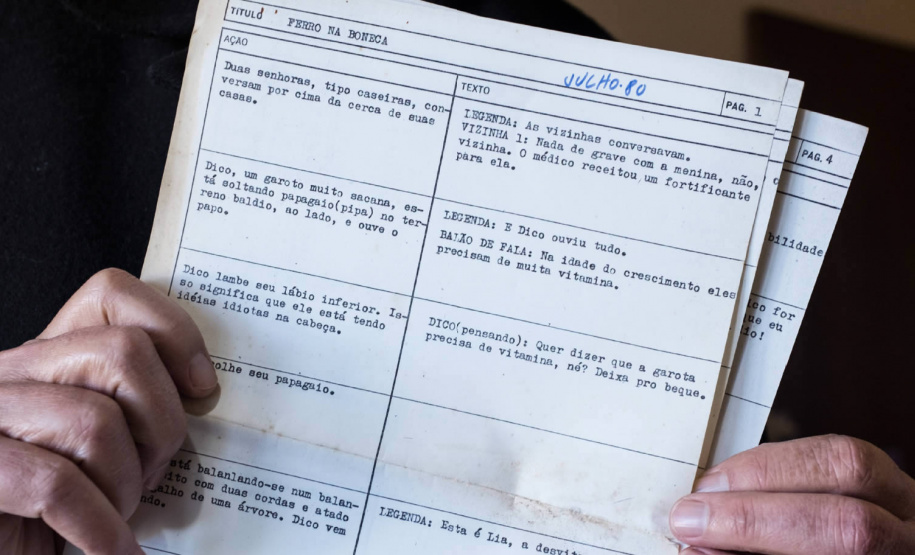 TÍTULO FERRO NA BONECA
JULHO-80
AÇÃO
TEXTO
PAG. 1
Duas senhoras, tipo caseiras, con-
versam por cima da cerca de suas
casas.
LEGENDA: As vizinhas conversavam.
VIZINHA 1: Nada de grave com a menina, não,
vizinha. O médico receitou um fortificante
para ela.
Dico, um garoto muito sacana, es-
tá soltando papagaio(pipa) no ter-
reno baldio, ao lado, e ouve o
papo.
LEGENDA: E Dico ouviu tudo.
BALÃO DE FALA: Na idade do crescimento eles
precisam de muita vitamina.
Dico lambe seu lábio inferior. Is-
so significa que ele está tendo
idéias idiotas na cabeça.
DICO(pensando): Quer dizer que a garota
precisa de vitamina, né? Deixa pro beque.
olhe seu papagaio.
está balanlando-se num balan-
ito com duas cordas e atado
galho de uma árvore. Dico vem
ndo.
LEGENDA: Esta é Lia, a desvit
PAG. 4
bilidade
ico for
ue eu
io!